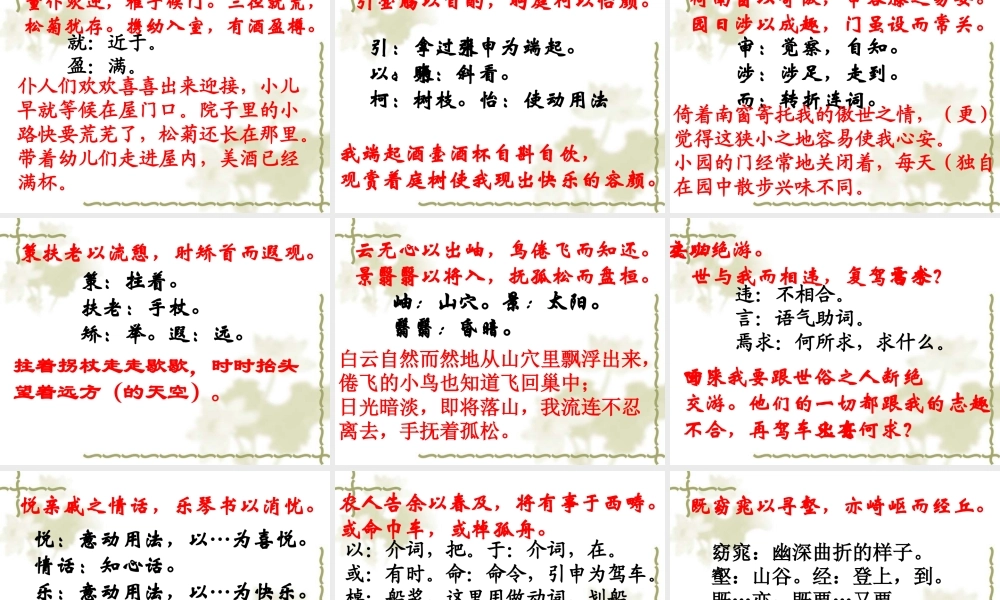 僮仆欢迎，稚子候门。三径就荒，
松菊犹存。携幼入室，有酒盈樽。
就：近于。
盈：满。
仆人们欢欢喜喜出来迎接，小儿
早就等候在屋门口。院子里的小
路快要荒芜了，松菊还长在那里。
带着幼儿们走进屋内，美酒已经
满杯。
引壶觞以自酌，眄庭柯以怡颜。
引：拿过来申为端起。
以。
斜看。
柯：树枝。怡：使动用法
我端起酒壶酒杯自斟自饮，
观赏着庭树使我现出快乐的容颜。
倚南窗以寄傲，审容膝之易安。
园日涉以成趣，门虽设而常关。
审：觉察，自知。
涉：涉足，走到。
而：转折连词。
倚着南窗寄托我的傲世之情，（更）
觉得这狭小之地容易使我心安。
小园的门经常地关闭着，每天（独自
在园中散步兴味不同。
策扶老以流憩，时矫首而遐观。
策：拄着。
扶老：手杖。
矫：举。遐：远。
拄着拐杖走走歇歇，时时抬头
望着远方（的天空）。
云无心以出岫，鸟倦飞而知还。
景翳翳以将入，抚孤松而盘桓。
岫：山穴。景：太阳。
翳翳：昏暗。
白云自然而然地从山穴里飘浮出来，
倦飞的小鸟也知道飞回巢中；
日光暗淡，即将落山，我流连不忍
离去，手抚着孤松。
绝游。
世与我而相违，复驾言
违：不相合。
言：语气助词。
焉求：何所求，求什么。
我要跟世俗之人断绝
交游。他们的一切都跟我的志趣
不合，再驾车出去何求？
悦亲戚之情话，乐琴书以消忧。
悦：意动用法，以…为喜悦。
情话：知心话。
乐：意动用法，以…为快乐。
农人告余以春及，将有事于西畴。
或命巾车，或棹孤舟。
以：介词，把。于：介词，在。
或：有时。命：命令，引申为驾车。
棹：船桨，这里用做动词，划船
既窈窕以寻壑，亦崎岖而经丘。
窈窕：幽深曲折的样子。
壑：山谷。经：登上，到。
既…亦，既要…又要